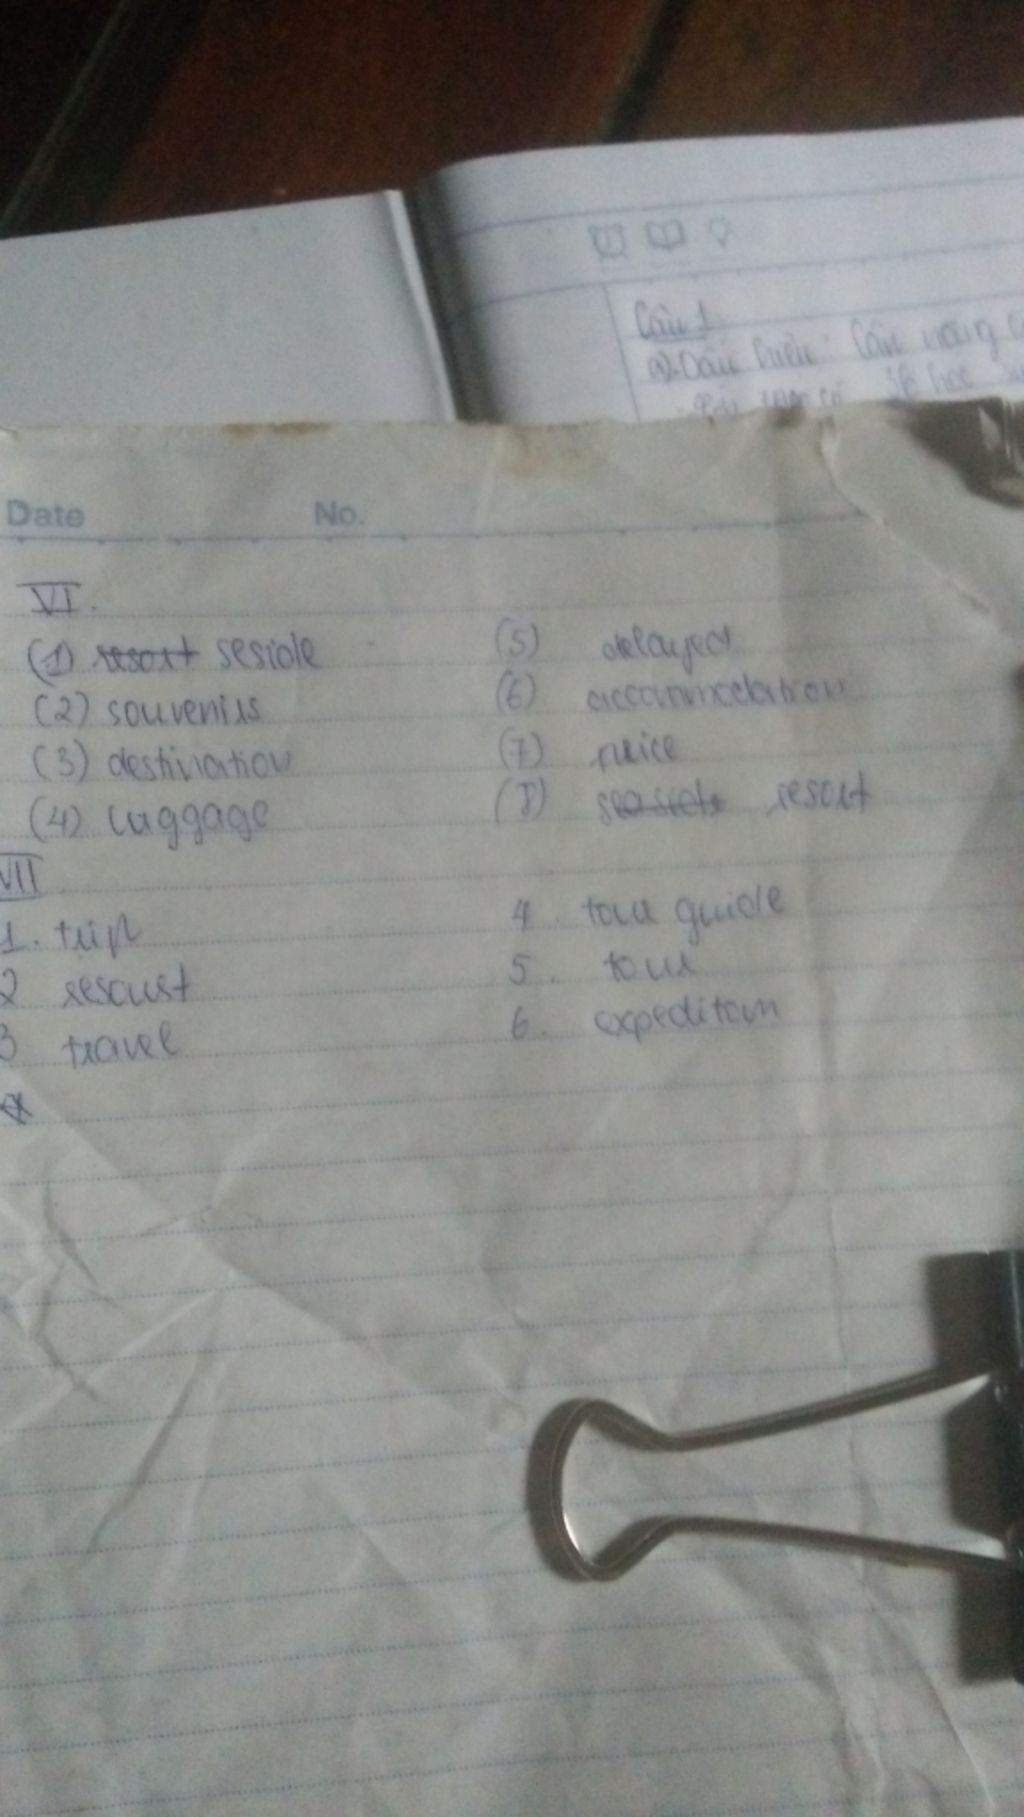 Câu 1
a). Dấu hiệu: Cân nặng
Date No.
VI.
(1) resort seside
(2) souvenirs
(3) destination
(4) luggage
(5) delayed
(6) accommodation
(7) price
(8) resort
VII
1. trip
2 resourt
3 travel
4. tour guide
5. tour
6. expeditom